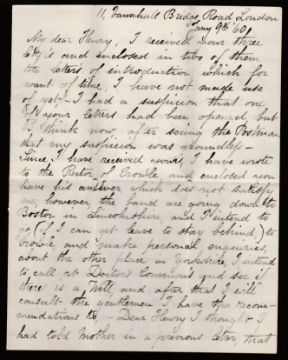 11, Bridge Road London
Jany 9th 60
My dear Henry, I received your three
and enclosed in two of them
the letters of introduction which for
want of time, I have not made use
of yet. I had a suspicion that one
of your letters had been opened but
I think now, after seeing the Postman
that my suspicion was groundless —
Since I have received yours I have wrote
to the Rector of Crowle and enclosed you
have his answer which does not satisfy
me, however the band are going down to
Boston in Lincolnshire, and I intend to
go (if I can get leave to stay behind) to
Crowle and make personal enquiries,
about the other place in Yorkshire, I intend
to call at Doctors Commons and see if
there is a Will, and after that I will
consult the gentlemen I have the recom-
mendations to — Dear Henry I thought I
had told Mother in a previous letter, that